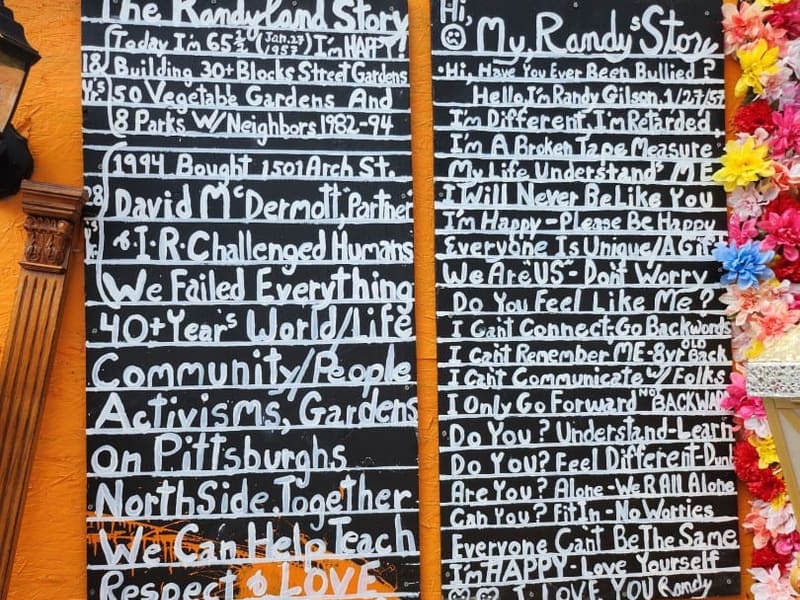 The Randyland Story
Today I'm 65½ (Jan. 27 1957) I'm HAPPY!
18 Yr.s
Building 30+ Blocks Street Gardens
50 Vegetable Gardens And
8 Parks W/Neighbors 1982-94
1994 Bought 1501 Arch St.
28
David McDermott, "Partner"
& I•R•Challenged Humans
We Failed Everything
40+ Year's World/Life
Community/People
Activisms, Gardens
on Pittsburghs
NorthSide, Together
We Can Help Teach
Respect & LOVE
Hi,
My, Randy's Story
•Hi, Have You Ever Been Bullied?
Hello, I'm Randy Gilson, 1/27/57
I'm Different, I'm Retarded,
I'm A Broken Tape Measure
My Life Understand's ME
I Will Never Be Like You
I'm Happy - Please Be Happy
Everyone Is Unique/A Gift
We Are "US" - Don't Worry
Do You Feel Like Me?
I Can't Connect-Go Backwords
I can't Remember ME-8yr OLD Back
I Can't Communicate w/ Folks
I Only Go Forward NOT BACKWARD
Do You? Understand-Learn
Do You? Feel Different-Dum
Are You? Alone-We R All Alone
Can You? Fit In - No Worries
Everyone Can't Be The Same
I'm HAPPY-Love Yourself
I LOVE YOU Randy